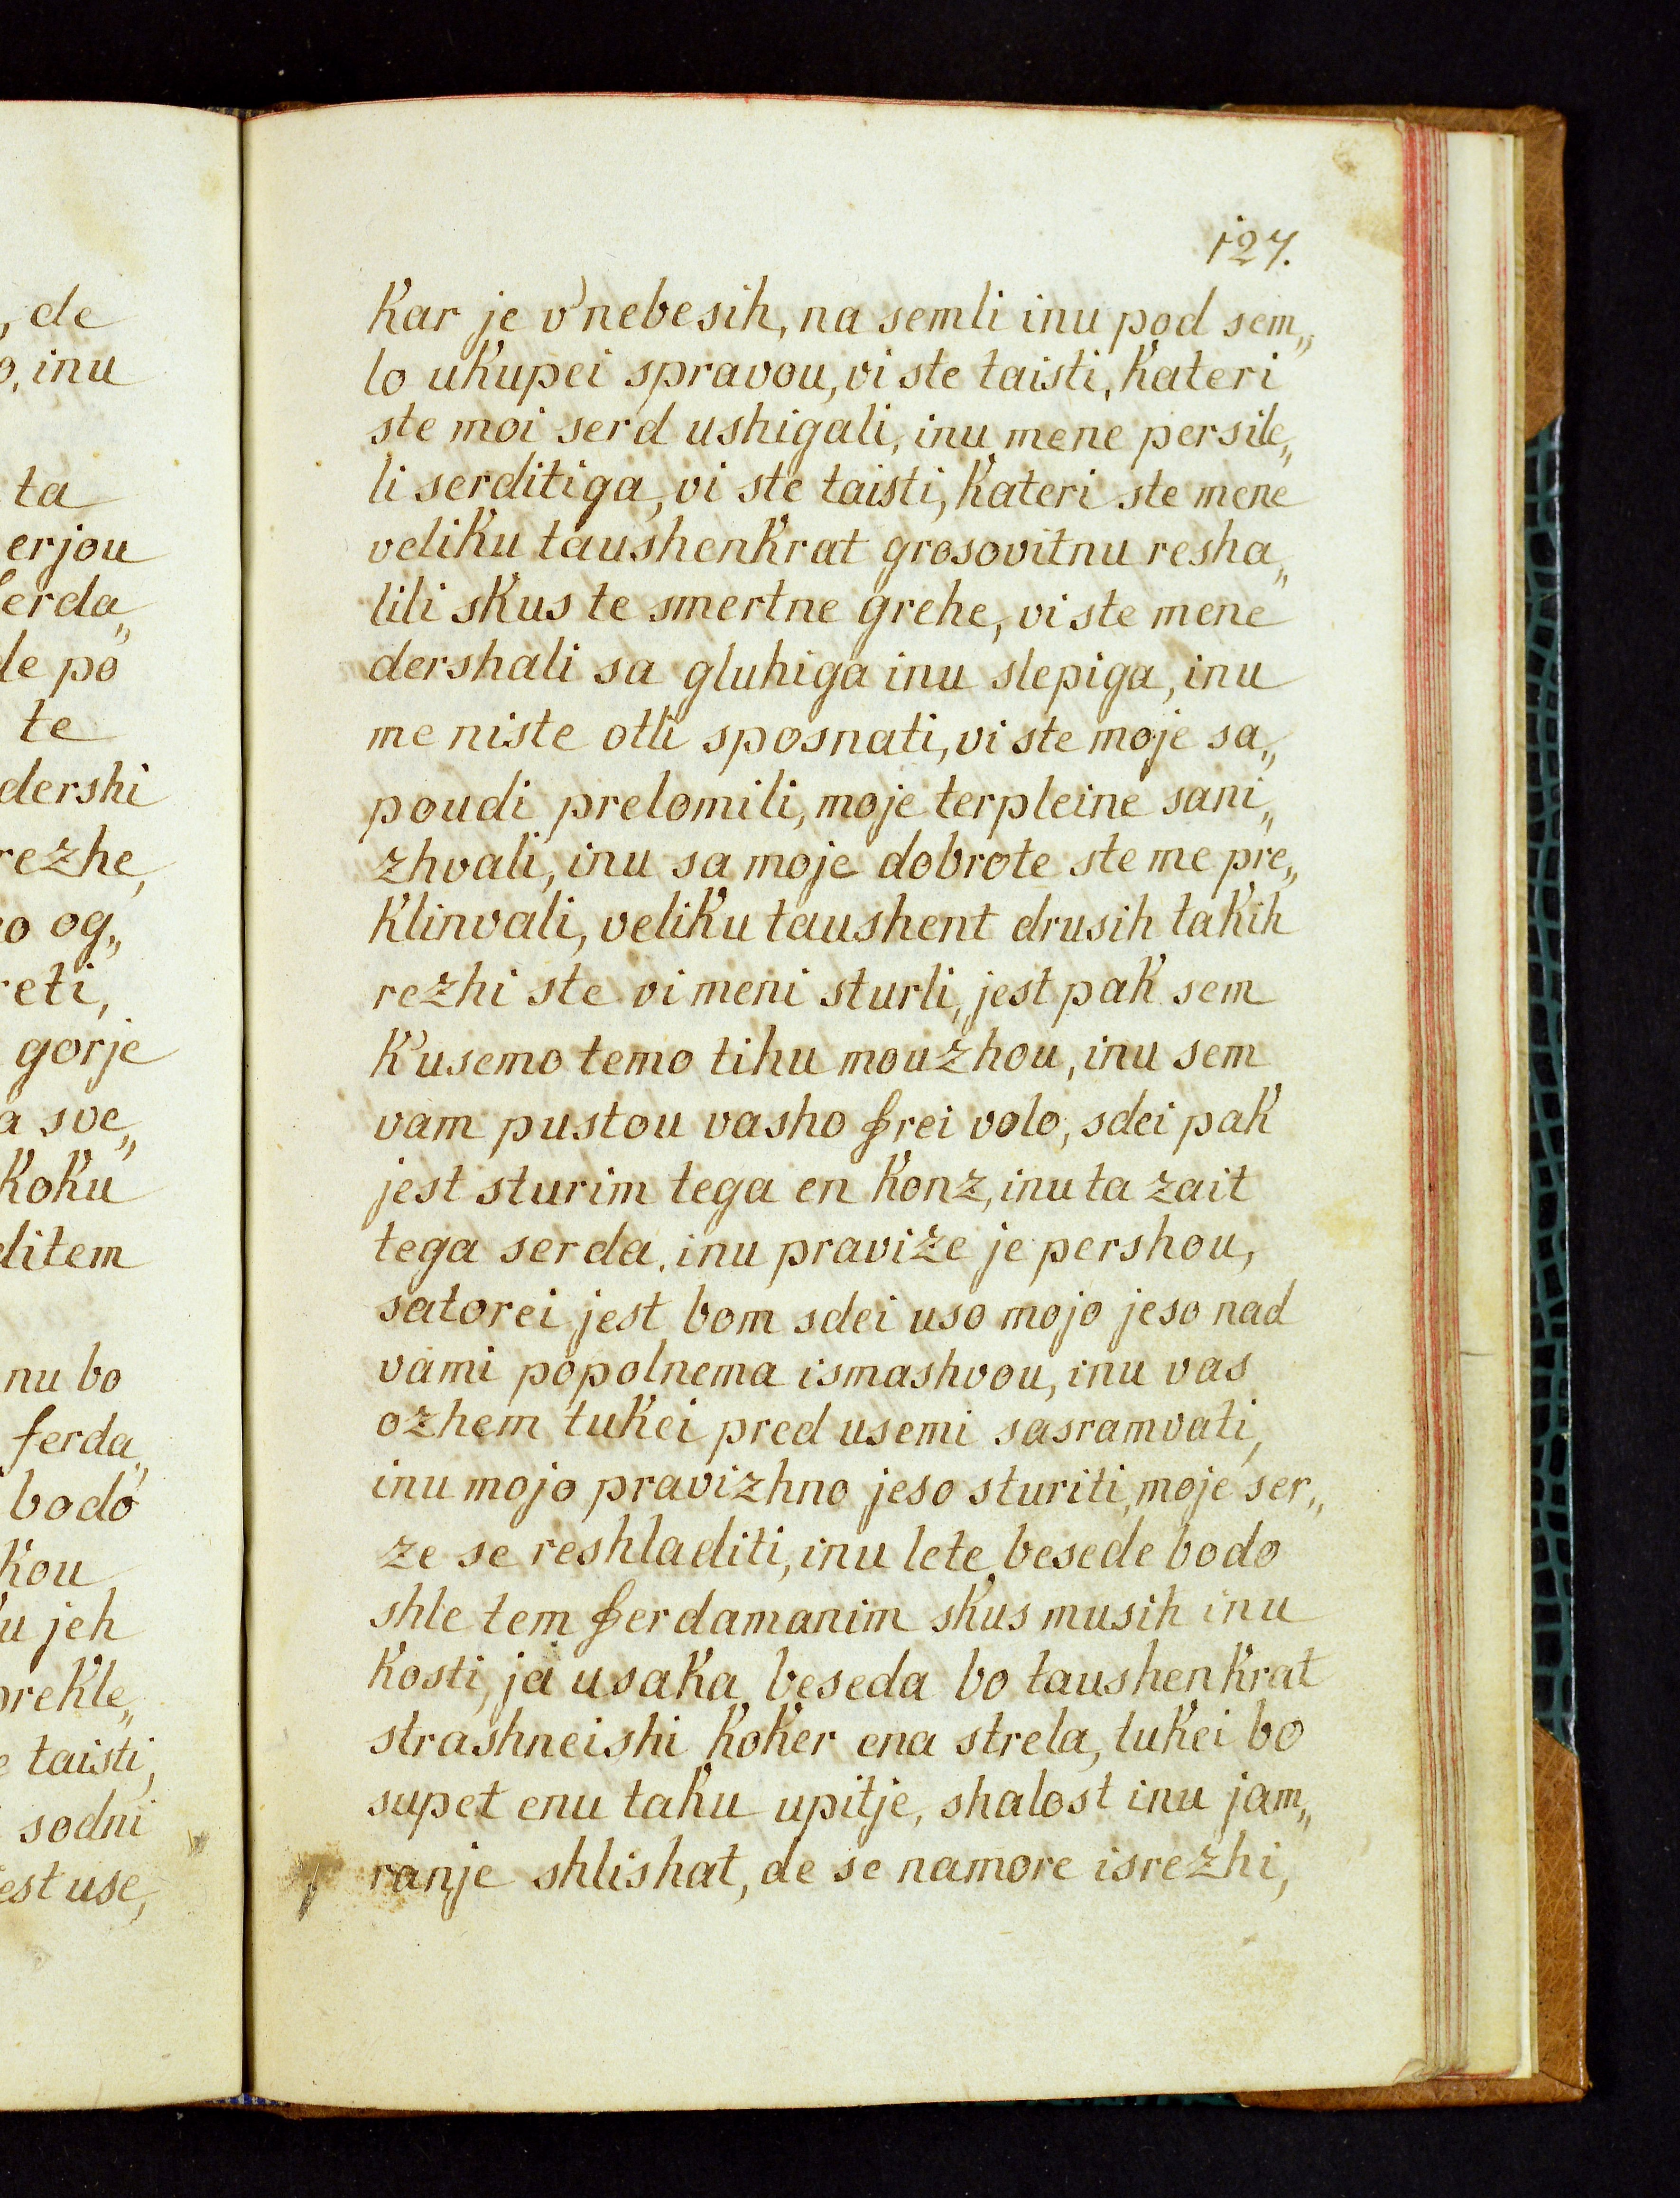 , de
o, inu
ta
erjou
ferda„
de po
te
dershi
rezhe,
o og„
reti,
gorje
a sve„
Koku
ditem
nu bo
ferda„
bodo
kou
u jeh
prekle„
e taisti,
sodni
jest use,
127.
Kar je v'nebesih, na semli inu pod sem„
lo ukupei spravou, vi ste taisti, Kateri
ste moi serd ushigali, inu mene persile„
li serditiga, vi ste taisti, Kateri ste mene
veliku taushenkrat grosovitnu resha„
lili skus te smertne grehe, vi ste mene
dershali sa gluhiga inu slepiga, inu
me niste otli sposnati, vi ste moje sa„
poudi prelomili, moje terpleine sani„
zhvali, inu sa moje dobrote ste me pre„
klinvali, veliku taushent drusih takih
rezhi ste vi meni sturli, jest pak sem
K'usemo temo tihu mouzhou, inu sem
vam pustou vasho frei volo, sdei pak
jest sturim tega en Konz, inu ta zait
tega serda, inu pravize je pershou,
satorei jest bom sdei uso mojo jeso nad
vami popolnema ismashvou, inu vas
ozhem tukei pred usemi sasramvati,
inu mojo pravizhno jeso sturiti, moje ser„
ze se reshladiti, inu lete besede bodo
shle tem ferdamanim skus musih inu
Kosti, ja usaka beseda bo taushenkrat
strashneishi koker ena strela, tukei bo
supet enu taku upitje, shalost inu jam„
ranje shlishat, de se namore isrezhi,